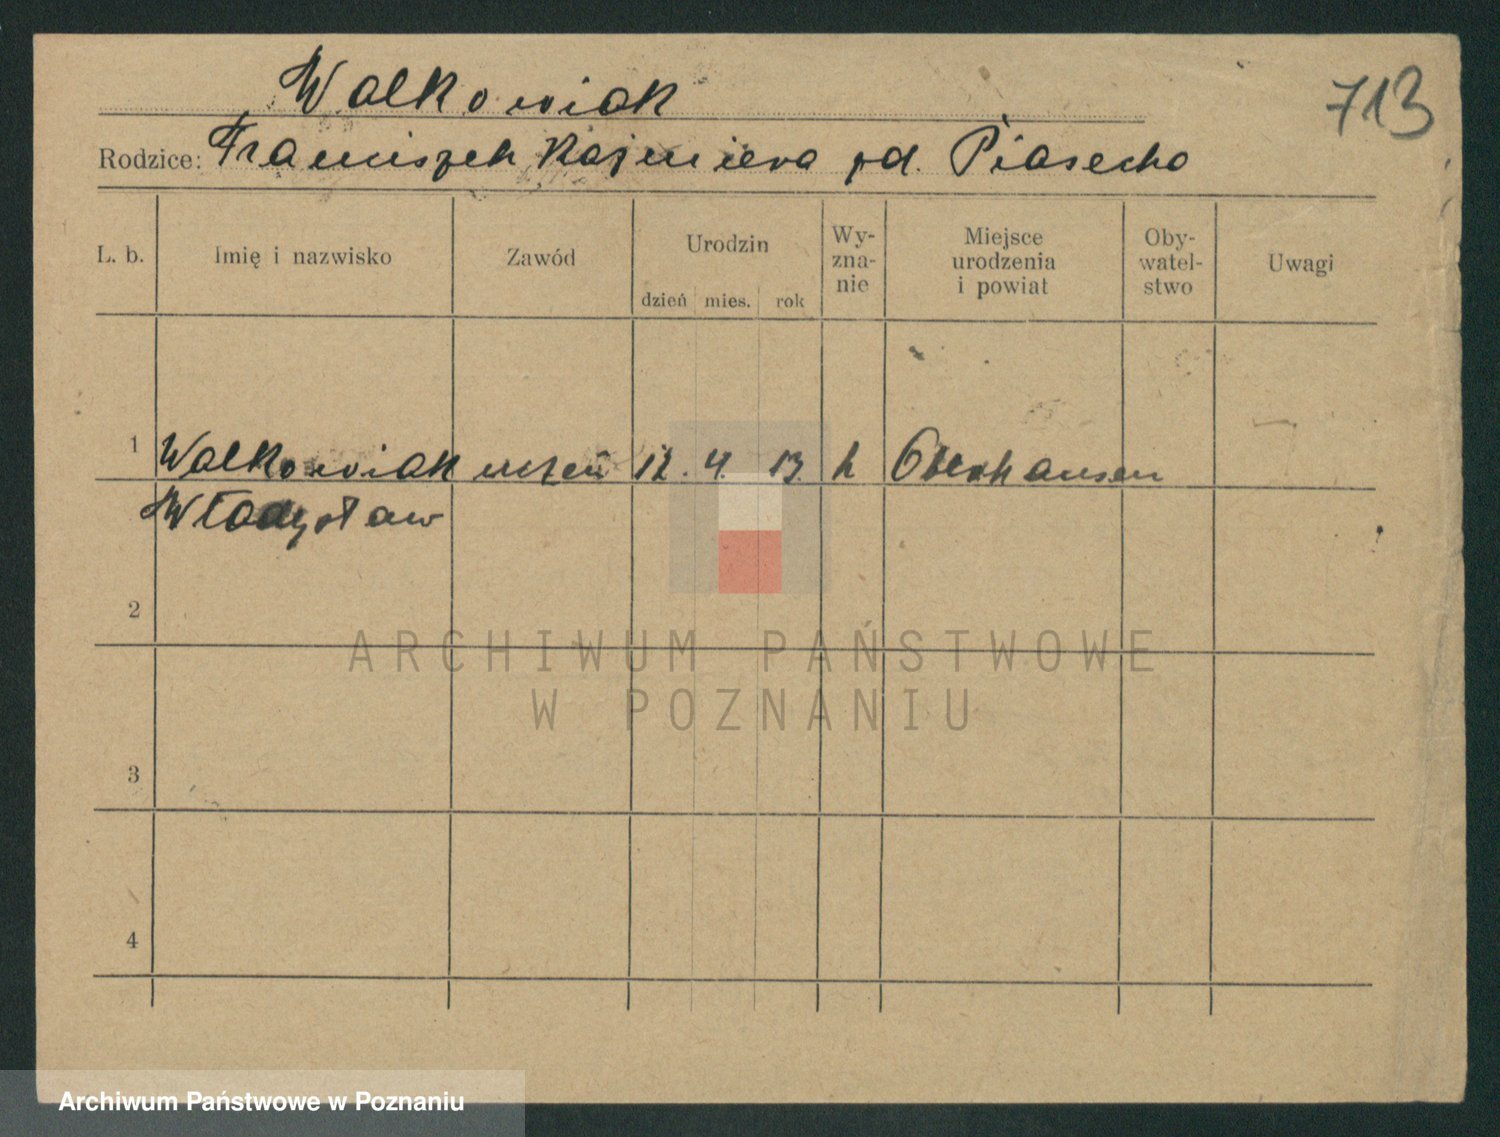 Walkowiak
713
Rodzice: Franciszek Kazmiera zd. Piasecka
L. b. Imię i nazwisko Zawód Urodzin dzień mies. rok Wy-zna-nie Miejsce urodzenia i powiat Oby-watel-stwo Uwagi
1 Walkowiak uczeń 12. 4. 13. k Oberhausen
Władysław
2
3
4
ARCHIWUM PAŃSTWOWE
W POZNANIU
Archiwum Państwowe w Poznaniu